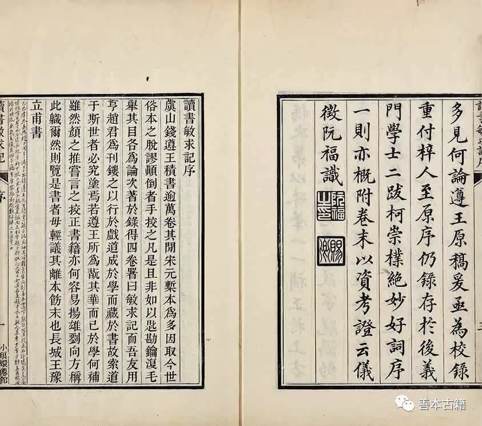 多見何論遵王原稿爰亟為校録
重付梓人至原序仍録存於後義
門學士二跋柯崇樸絶妙好詞序
一則亦概附卷末以資考證云儀
徵阮福識
讀書敏求記序
虞山錢遵王積書逾萬卷其間宋元槧本為多因取今世
俗本之脫謬顛倒者手校之凡是且非如以是勘鑰沒毛
舉其目各為論次著於錄得四卷署曰敏求記而吾友用
亨趙君為刊鏤之以行於戲道咸於學而藏於書故索道
于斯世者必究塗焉若遵王所為哉其華而已於學何補
雖然顏之推嘗言之校正書籍亦何容易揚雄劉向方稱
此職爾然則覽是書者毋輕議其離本飭末也長城王豫
立甫書
讀書敏求記
序
一
善本古籍